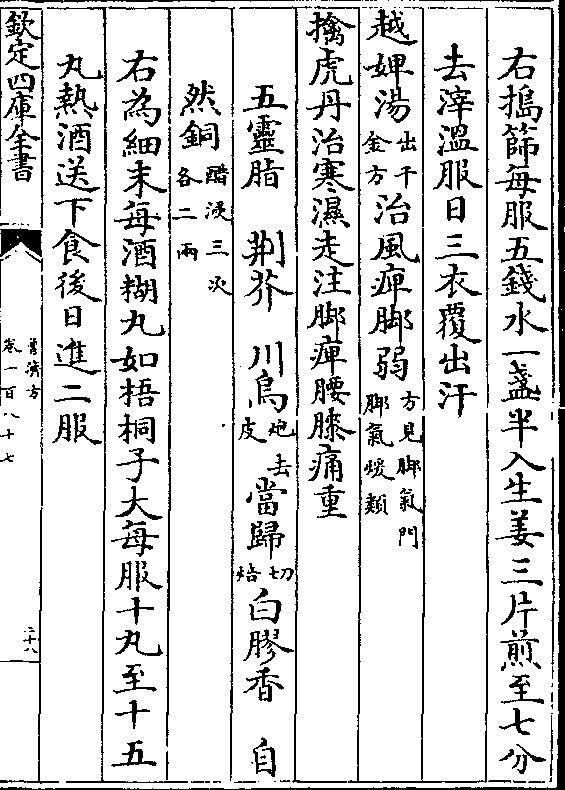 右搗篩每服五錢水一盞半入生姜三片煎至七分
去滓溫服日三衣覆出汗
越婢湯出千金方治風痺脚弱方見脚氣門脚氣緩類
擒虎丹治寒濕走注脚痺腰膝痛重
五靈脂 荆芥 川烏炮去皮 當歸切焙 白膠香 自
然銅醋淬三次各二兩
右為細末每酒糊丸如梧桐子大每服十丸至十五
丸熱酒送下食後日進二服
欽定四庫全書
普濟方
卷一百八十七
二十八